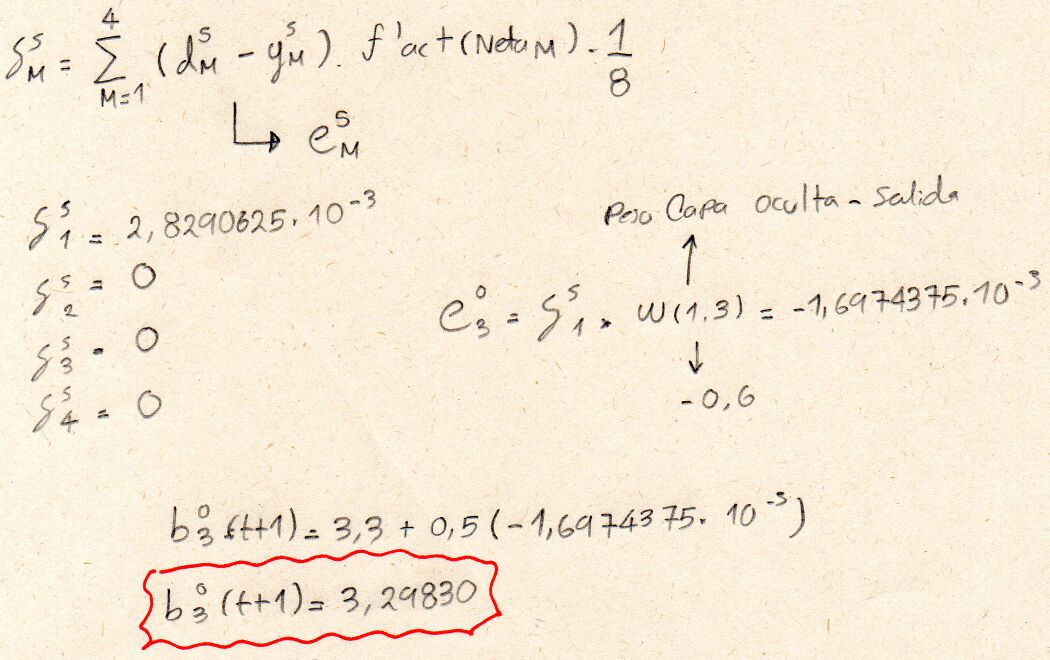 δ^s_M = Σ^4_{M=1} (d^s_M - y^s_M). f'act(Neta_M). 1/8
↳ e^s_M
δ^s_1 = 2,8290625.10^-3
δ^s_2 = 0
δ^s_3 = 0
δ^s_4 = 0
Peso Capa oculta - Salida
e^o_3 = δ^s_1 . w(1.3) = -1,6974375.10^-3
-0,6
b^o_3 (t+1) = 3,3 + 0,5 (-1,6974375. 10^-3)
b^o_3 (t+1) = 3,29830